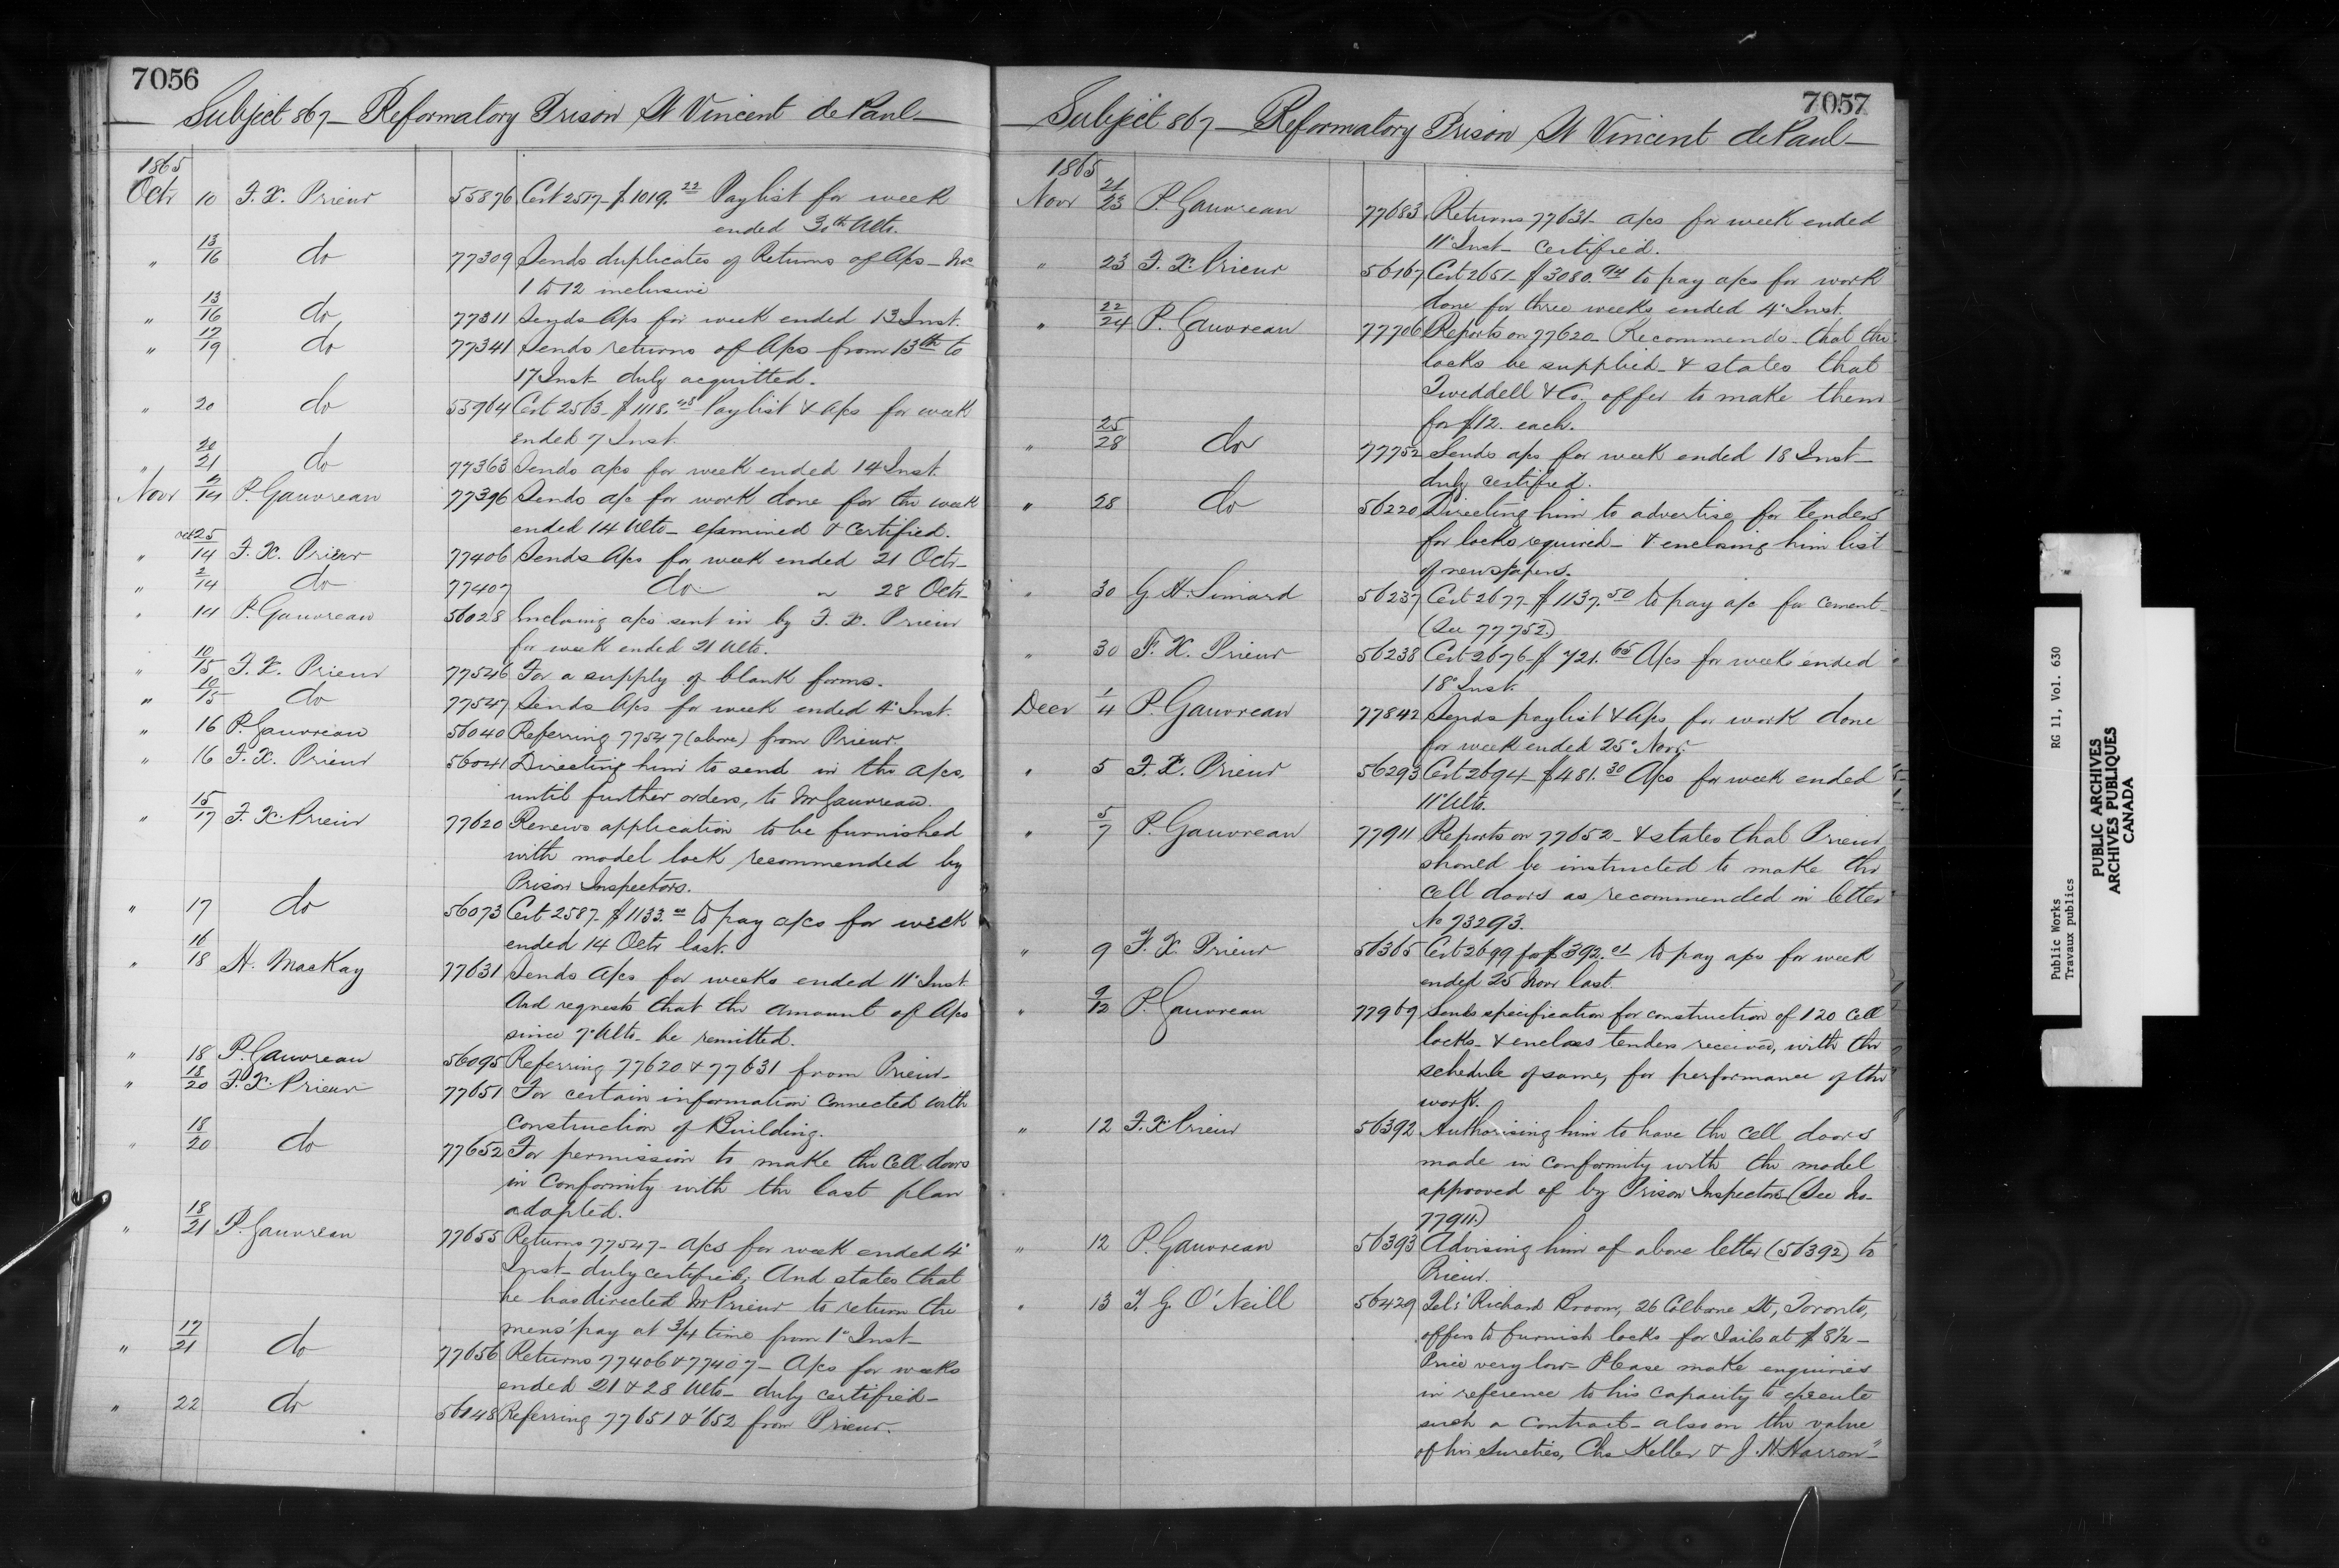 7056
Subject 867 - Reformatory Prison St Vincent de Paul
1865
Octr 10 F. X. Prieur 55876 Cert 2517 - $1019.22 Paylist for week
ended 30th Ulto.
" 13/16 do 77309 Sends duplicates of Returns of A/cs - Nos
1 to 12 inclusive
" 13/16 do 77311 Sends A/cs for week ended 13 Inst.
" 17/19 do 77341 Sends returns of A/cs from 13th to
17 Inst - duly acquitted.
" 20 do 55964 Cert 2563 - $1118.48 Paylist & A/cs for week
ended 7 Inst.
" 20/21 do 77363 Sends a/cs for week ended 14 Inst.
Novr 2/14 P. Gauvreau 77396 Sends a/c for work done for the week
ended 14 Ulto - examined & certified.
" oct 25/14 F. X. Prieur 77406 Sends A/cs for week ended 21 Octr -
" 2/14 do 77407 do " 28 Octr -
" 14 P. Gauvreau 56028 Enclosing a/cs sent in by F. X. Prieur
for week ended 21 Ulto.
" 10/15 F. X. Prieur 77546 For a supply of blank forms.
" 10/15 do 77547 Sends A/cs for week ended 4' Inst.
" 16 P. Gauvreau 56040 Referring 77547 (above) from Prieur.
" 16 F. X. Prieur 56041 Directing him to send in the a/cs,
until further orders, to Mr Gauvreau.
" 15/17 F. X. Prieur 77620 Renews application to be furnished
with model lock recommended by
Prison Inspectors.
" 17 do 56073 Cert 2587 - $1133.00 to pay a/cs for week
ended 14 Octr last.
" 16/18 H. MacKay 77631 Sends A/cs for weeks ended 11' Inst
And requests that the amount of A/cs
since 7' Ulto - be remitted.
" 18 P. Gauvreau 56095 Referring 77620 & 77631 from Prieur -
" 18/20 F. X. Prieur 77651 For certain information connected with
construction of Building.
" 18/20 do 77652 For permission to make the Cell doors
in Conformity with the last plan
adopted.
" 18/21 P. Gauvreau 77655 Returns 77547 - a/cs for week ended 4'
Inst - duly certified; And states that
he has directed Mr Prieur to return the
mens' pay at 3/4 time from 1' Inst -
" 17/21 do 77656 Returns 77406 & 77407 - A/cs for weeks
ended 21 & 28 Ulto - duly certified -
" 22 do 56148 Referring 77651 & '652 from Prieur.
7057
Subject 867 - Reformatory Prison St Vincent de Paul -
1865
Novr 21/23 P. Gauvreau 77683 Returns 77631 - a/cs for week ended
11' Inst - certified.
" 23 F. X. Prieur 56167 Cert 2651 - $3080.94 to pay a/cs for work
done for three weeks ended 4' Inst.
" 22/24 P. Gauvreau 77706 Reports on 77620 - Recommends - that the
locks be supplied - & states that
Tweddell & Co. offer to make them
for $12. each.
" 25/28 do 77752 Sends a/cs for week ended 18 Inst -
duly certified.
" 28 do 56220 Directing him to advertise for tenders
for locks required - & enclosing him list
of newspapers.
" 30 G. H. Simard 56237 Cert 2677 - $1137.50 to pay a/c for cement -
(See 77752.)
" 30 F. X. Prieur 56238 Cert 2676 - $721.65 A/cs for week ended
18' Inst.
Decr 1/4 P. Gauvreau 77842 Sends paylist & A/cs for work done
for week ended 25' Novr.
" 5 F. X. Prieur 56293 Cert 2694 - $481.30 A/cs for week ended
11' Ulto.
" 5/7 P. Gauvreau 77911 Reports on 77652 - & states that Prieur
should be instructed to make the
cell doors as recommended in letter
No 73293.
" 9 F. X. Prieur 56365 Cert 2699 for $392.01 to pay a/cs for week
ended 25 Novr last.
" 9/12 P. Gauvreau 77969 Sends specification for construction of 120 Cell
locks - & encloses tenders received, with the
schedule of same, for performance of the
work.
" 12 F. X. Prieur 56392 Authorising him to have the cell doors
made in conformity with the model
approved of by Prison Inspectors (See No
77911.)
" 12 P. Gauvreau 56393 Advising him of above letter (56392) to
Prieur.
" 13 T. G. O'Neill 56429 Tel: "Richard Broom, 26 Colborne St, Toronto,
offers to furnish locks for Jails at $8½ -
Price very low - Please make enquiries
in reference to his capacity to execute
such a contract - also on the value
of his Sureties, Chs Keller & J. H. Harron" -
Public Works RG 11, Vol. 630
Travaux publics
PUBLIC ARCHIVES
ARCHIVES PUBLIQUES
CANADA